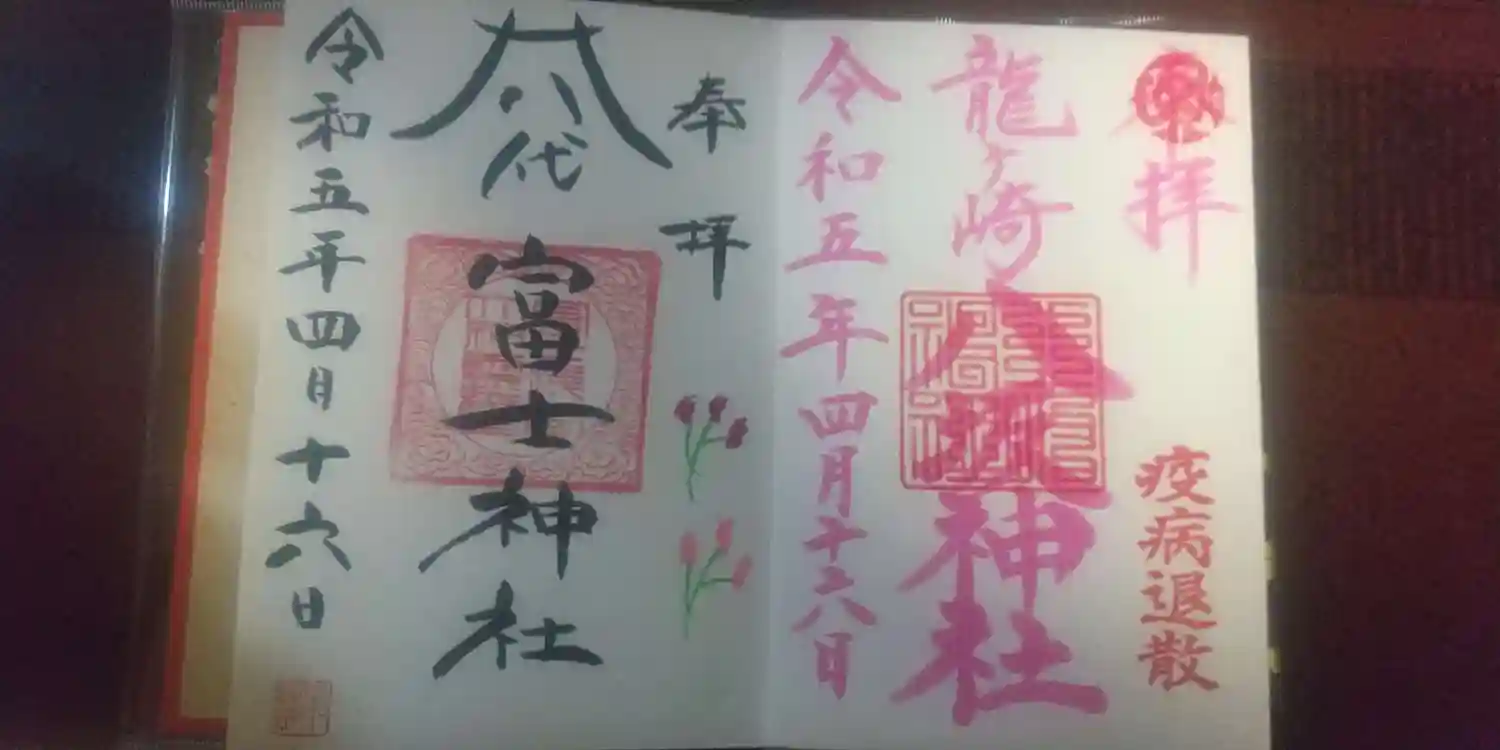 奉拝
疫病退散
龍ヶ崎
八坂神社
令和五年四月十六日
奉拝
八代
富士神社
令和五年四月十六日